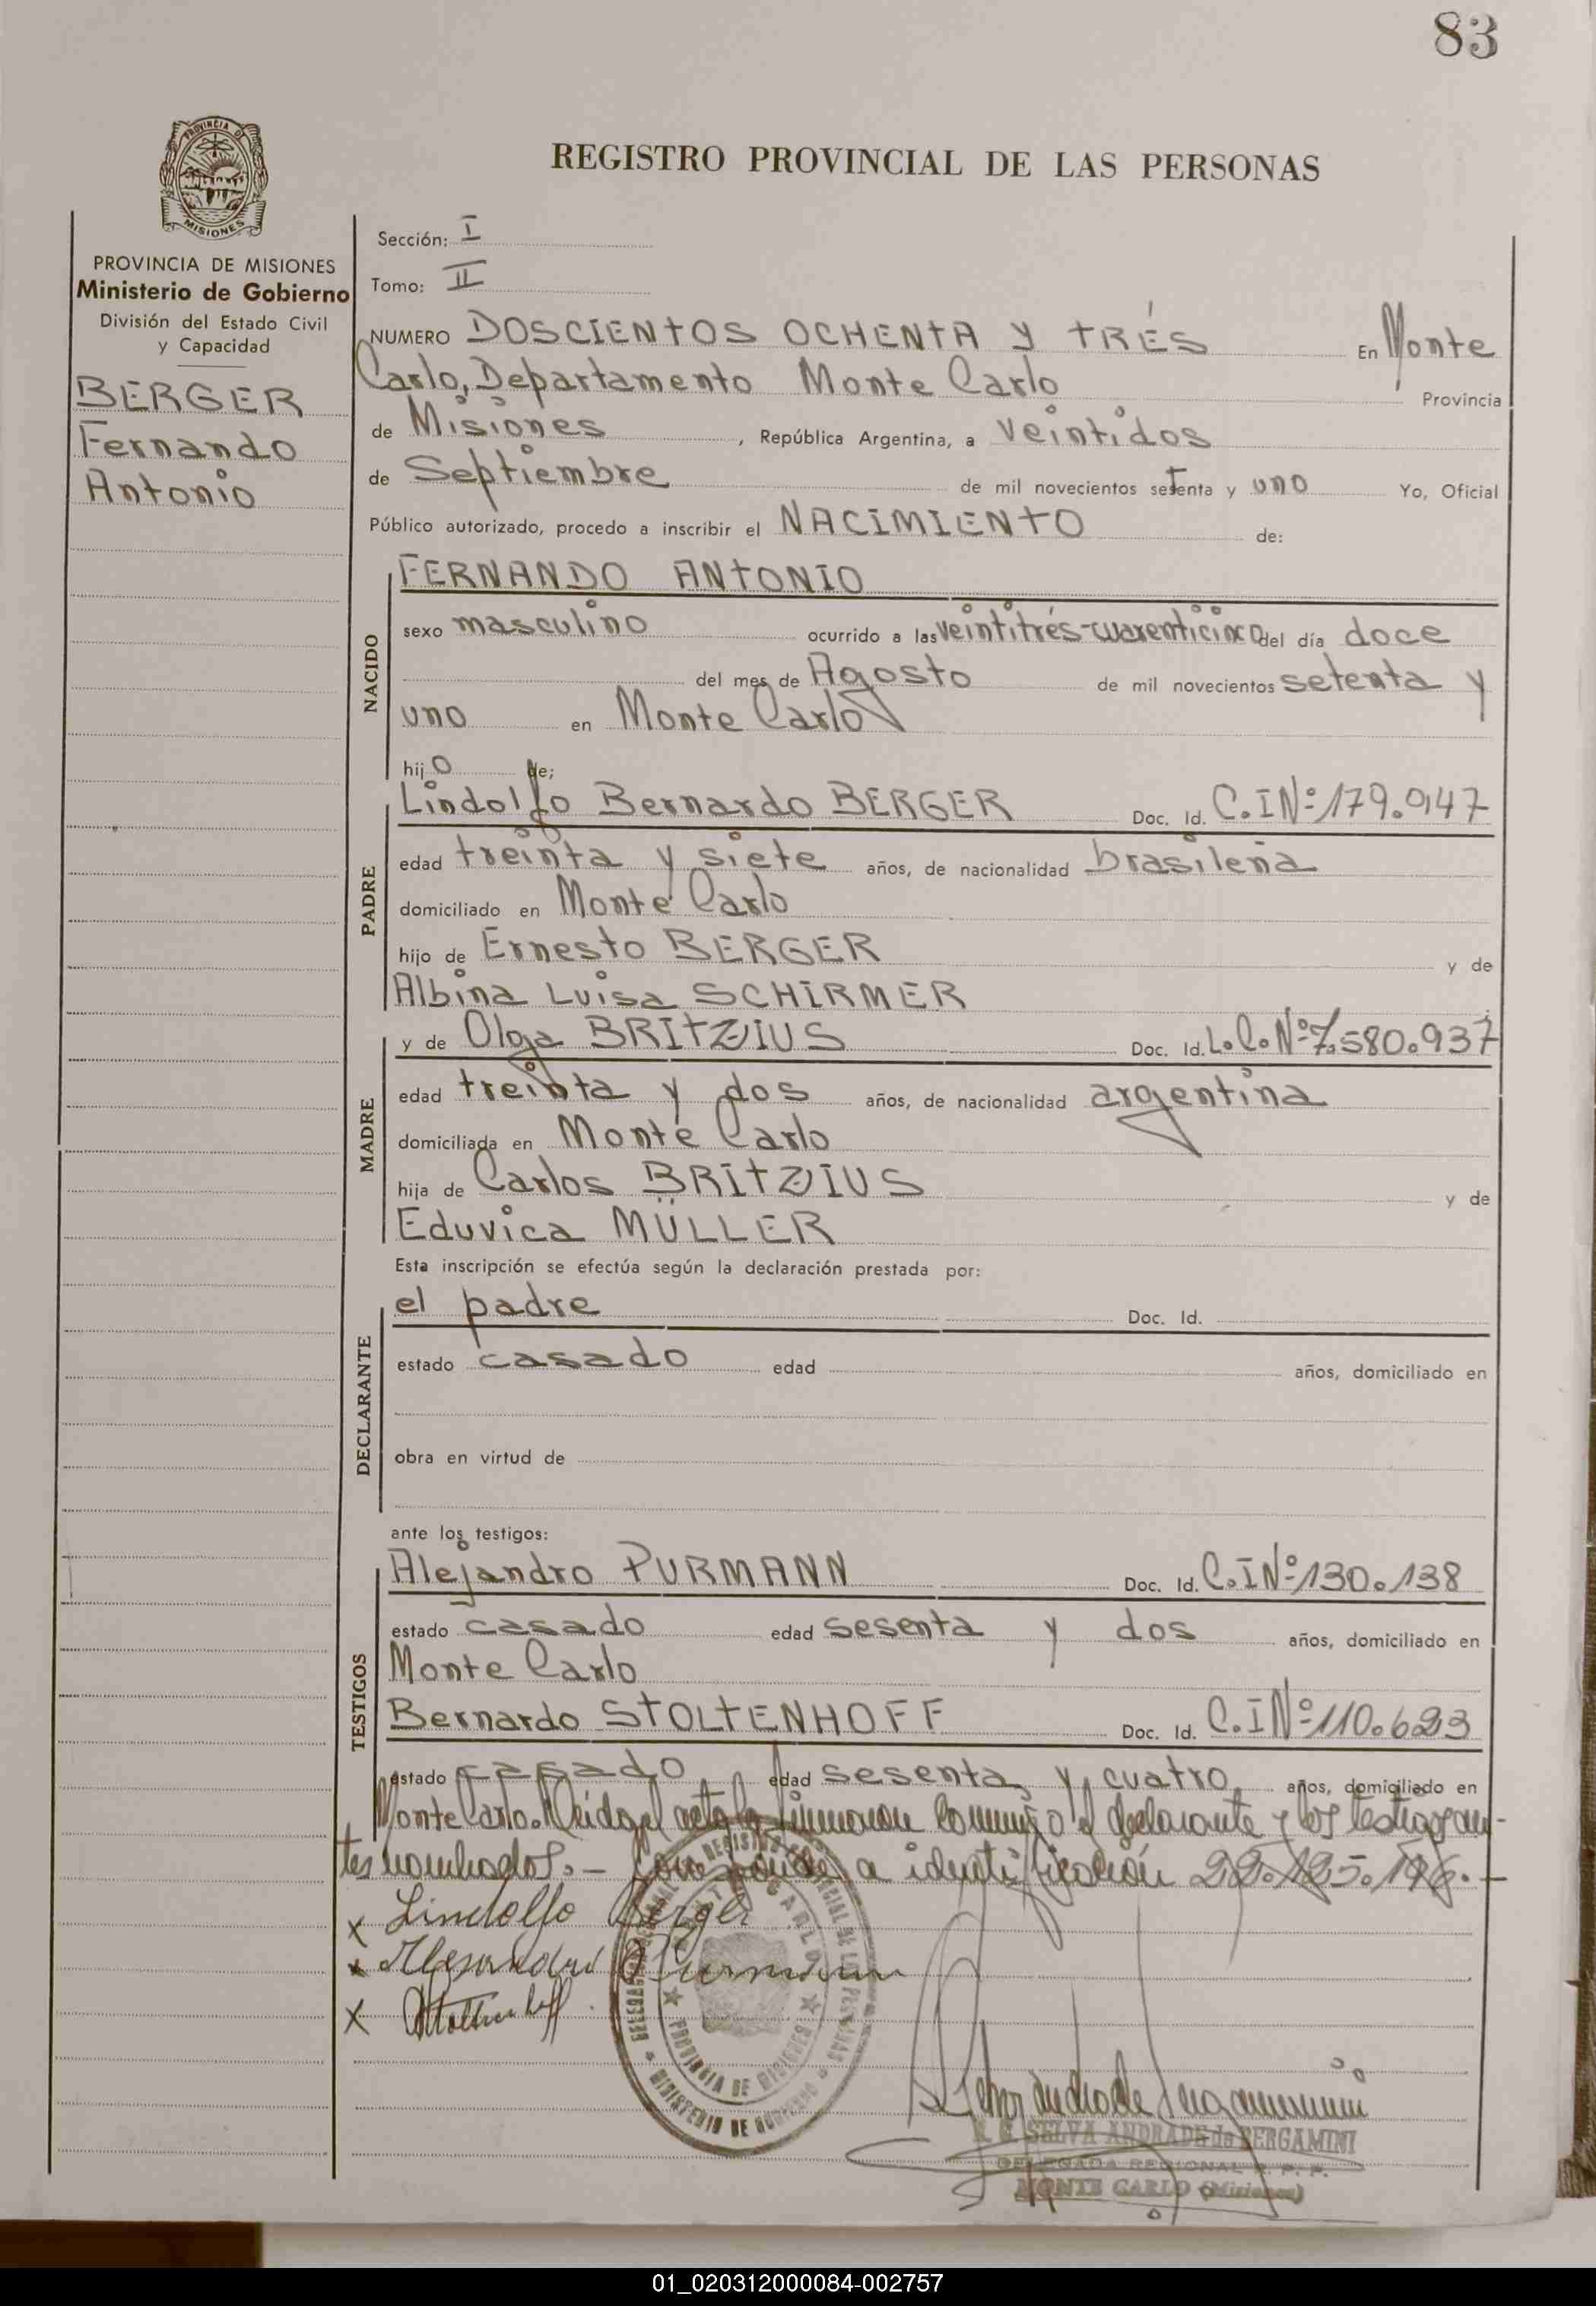 83
PROVINCIA DE
MISIONES
REGISTRO PROVINCIAL DE LAS PERSONAS
PROVINCIA DE MISIONES
Ministerio de Gobierno
División del Estado Civil
y Capacidad
BERGER
Fernando
Antonio
Sección: I
Tomo: II
NUMERO DOSCIENTOS OCHENTA Y TRÉS En Monte
Carlo, Departamento Monte Carlo Provincia
de Misiones, República Argentina, a Veintidos
de Septiembre de mil novecientos setenta y uno Yo, Oficial
Público autorizado, procedo a inscribir el NACIMIENTO de:
NACIDO
FERNANDO ANTONIO
sexo masculino ocurrido a las veintitrés-cuarenticinco del día doce
del mes de Agosto de mil novecientos setenta y
uno en Monte Carlo
hijo de;
PADRE
Lindolfo Bernardo BERGER Doc. Id. C.I.Nº 179.947
edad treinta y siete años, de nacionalidad brasileña
domiciliado en Monte Carlo
hijo de Ernesto BERGER y de
Albina Luisa SCHIRMER
MADRE
y de Olga BRITZIUS Doc. Id. L.C.Nº 7.580.937
edad treinta y dos años, de nacionalidad argentina
domiciliada en Monte Carlo
hija de Carlos BRITZIUS y de
Eduvica MÜLLER
Esta inscripción se efectúa según la declaración prestada por:
DECLARANTE
el padre Doc. Id.
estado casado edad años, domiciliado en
obra en virtud de
ante los testigos:
TESTIGOS
Alejandro PURMANN Doc. Id. C.I.Nº 130.138
estado casado edad sesenta y dos años, domiciliado en
Monte Carlo
Bernardo STOLTENHOFF Doc. Id. C.I.Nº 110.623
estado casado edad sesenta y cuatro años, domiciliado en
Monte Carlo. Leida el acta la firmaron conmigo el declarante y los testigos an-
tes nombrados.- Corresponde a identificación 22.125.196.-
x Lindolfo Berger
x Alejandro Purmann
x Stoltenhoff
PROVINCIA DE MISIONES
MINISTERIO DE GOBIERNO
S. C. SELVA ANDRADE de BERGAMINI
DELEGADA REGIONAL R. P. P.
MONTE CARLO (Misiones)
01_020312000084-002757